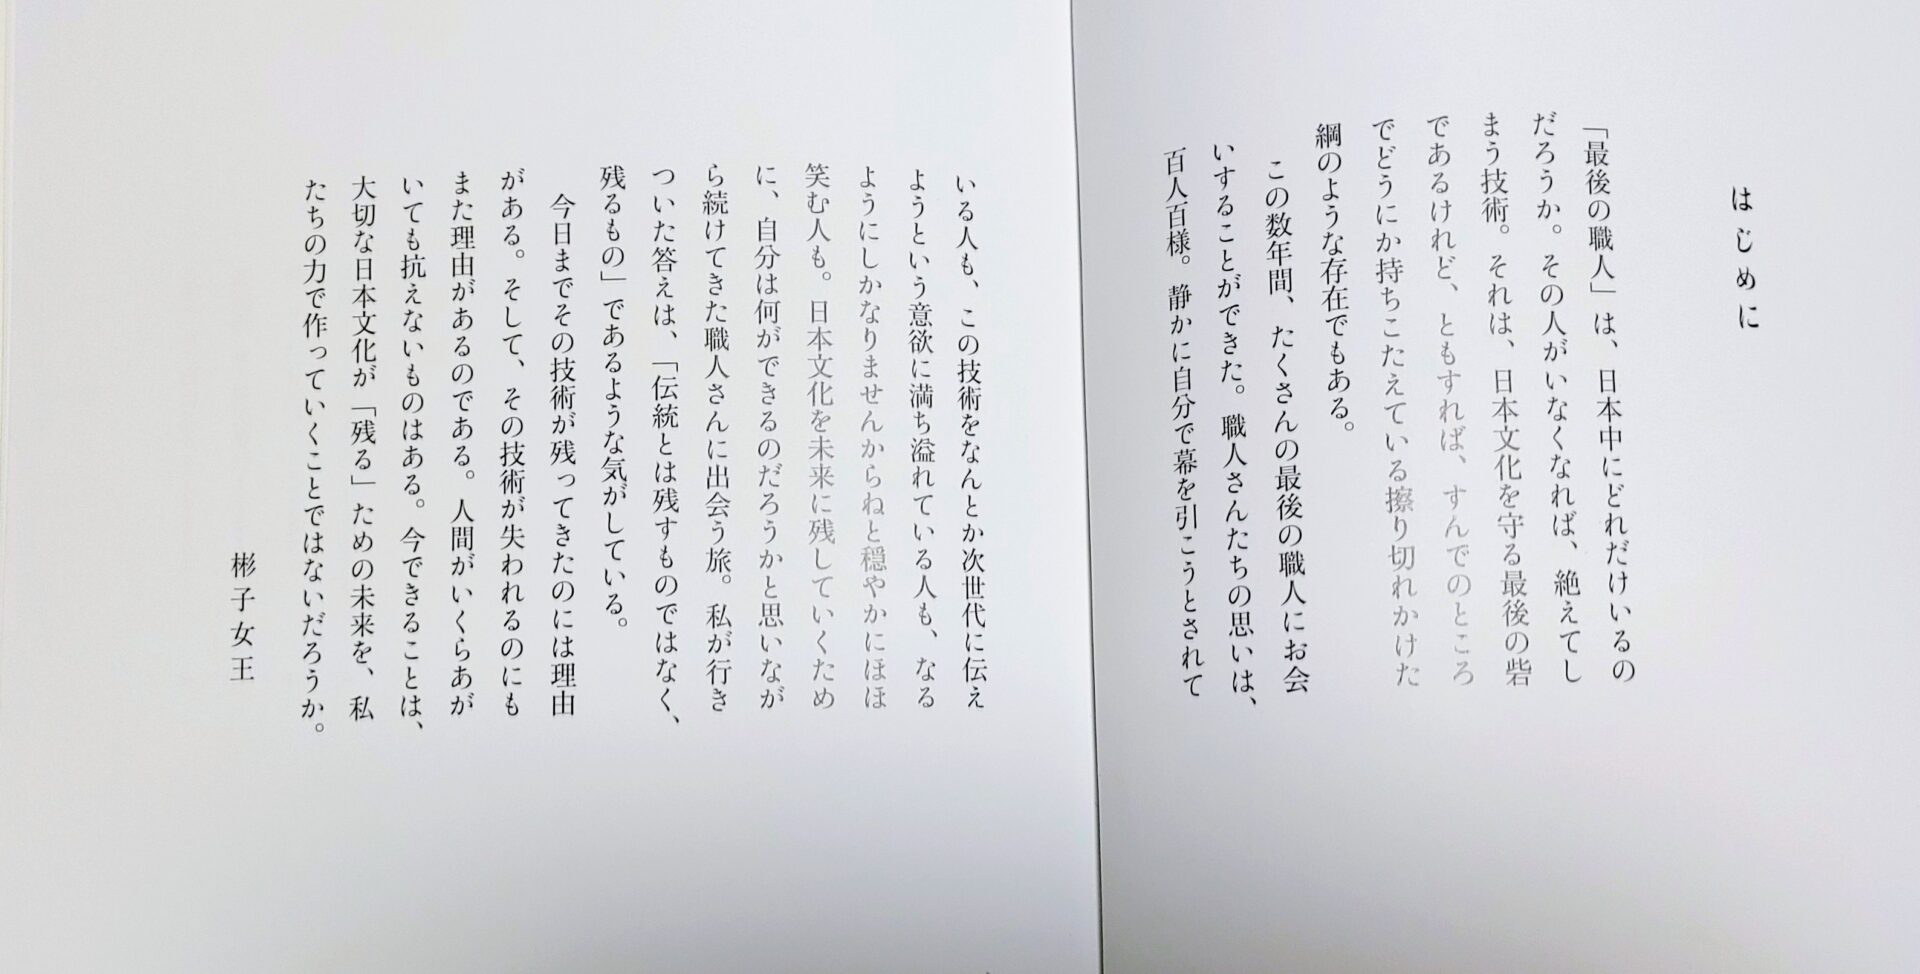 はじめに
「最後の職人」は、日本中にどれだけいるの
だろうか。その人がいなくなれば、絶えてし
まう技術。それは、日本文化を守る最後の砦
であるけれど、ともすれば、すんでのところ
でどうにか持ちこたえている擦り切れかけた
綱のような存在でもある。
この数年間、たくさんの最後の職人にお会
いすることができた。職人さんたちの思いは、
百人百様。静かに自分で幕を引こうとされて
いる人も、この技術をなんとか次世代に伝え
ようという意欲に満ち溢れている人も、なる
ようにしかなりませんからねと穏やかにほほ
笑む人も。日本文化を未来に残していくため
に、自分は何ができるのだろうかと思いなが
ら続けてきた職人さんに出会う旅。私が行き
ついた答えは、「伝統とは残すものではなく、
残るもの」であるような気がしている。
今日までその技術が残ってきたのには理由
がある。そして、その技術が失われるのにも
また理由があるのである。人間がいくらあが
いても抗えないものはある。今できることは、
大切な日本文化が「残る」ための未来を、私
たちの力で作っていくことではないだろうか。
彬子女王